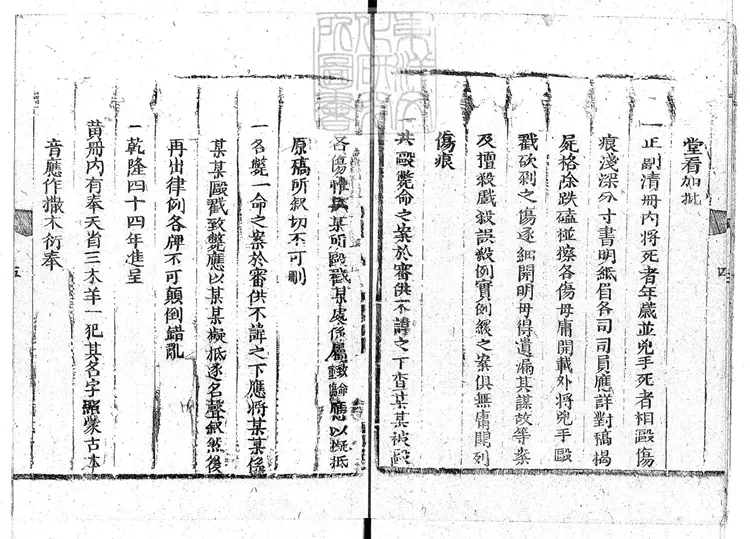 堂看加批
一正副清冊內將死者年歲並兇手死者相毆傷
痕淺深分寸書明紙眉各司司員應詳對稿揭
屍格除跌磕碰擦各傷毋庸開載外將兇手毆
戳砍剁之傷逐細開明毋得遺漏其謀故等案
及擅殺戲殺誤殺例實例緩之案俱無庸開列
傷痕
一共毆斃命之案於審供不諱之下查某某被毆
各傷惟某所毆戳某處係屬致命應以擬抵
原稿所敘切不可刪
一名斃一命之案於審供不諱之下應將某某係
某某毆戳致斃應以某某擬抵逐名聲敘然後
再出律例各牌不可顛倒錯亂
一乾隆四十四年進呈
黃冊內有奉天省三木羊一犯其名字照蒙古本
音應作撒木衍奉
四
五